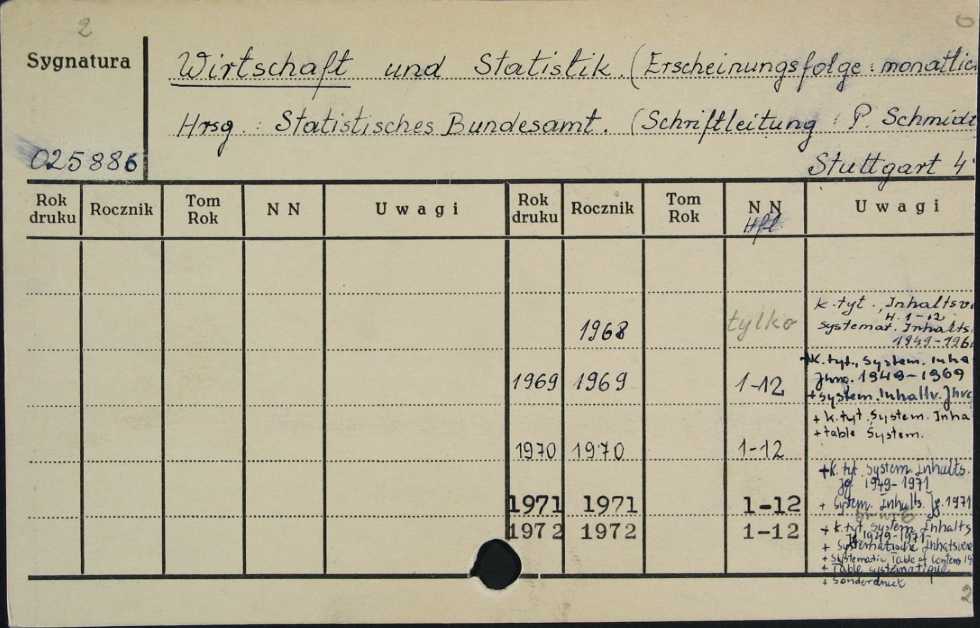 2
Sygnatura
Wirtschaft und Statistik. (Erscheinungsfolge: monatlic
Hrsg.: Statistisches Bundesamt. (Schriftleitung: P. Schmidt
025886
Stuttgart 4
Rok druku Rocznik Tom Rok N N Uwagi Rok druku Rocznik Tom Rok N N Uwagi
Hft
1968 tylko k. tyt., Inhaltsv
H. 1-12
systemat. Inhalts.
1949-196
1969 1969 1-12 +k. tyt., System. Inha
Jhrg. 1949-1969
+ System. Inhaltv. Jhrg
1970 1970 1-12 + k. tyt. System. Inha
+ table System.
1971 1971 1-12 +k. tyt. System. Inhalts.
Jg. 1949-1971
+ System. Inhalts. Jg. 1971
1972 1972 1-12 + k. tyt. System. Inhalts
Jg 1949-1971
+ Systematische Inhaltsve
+ Systematic Table of Contens 19
+ Table systematique
+ Sonderdruck
2